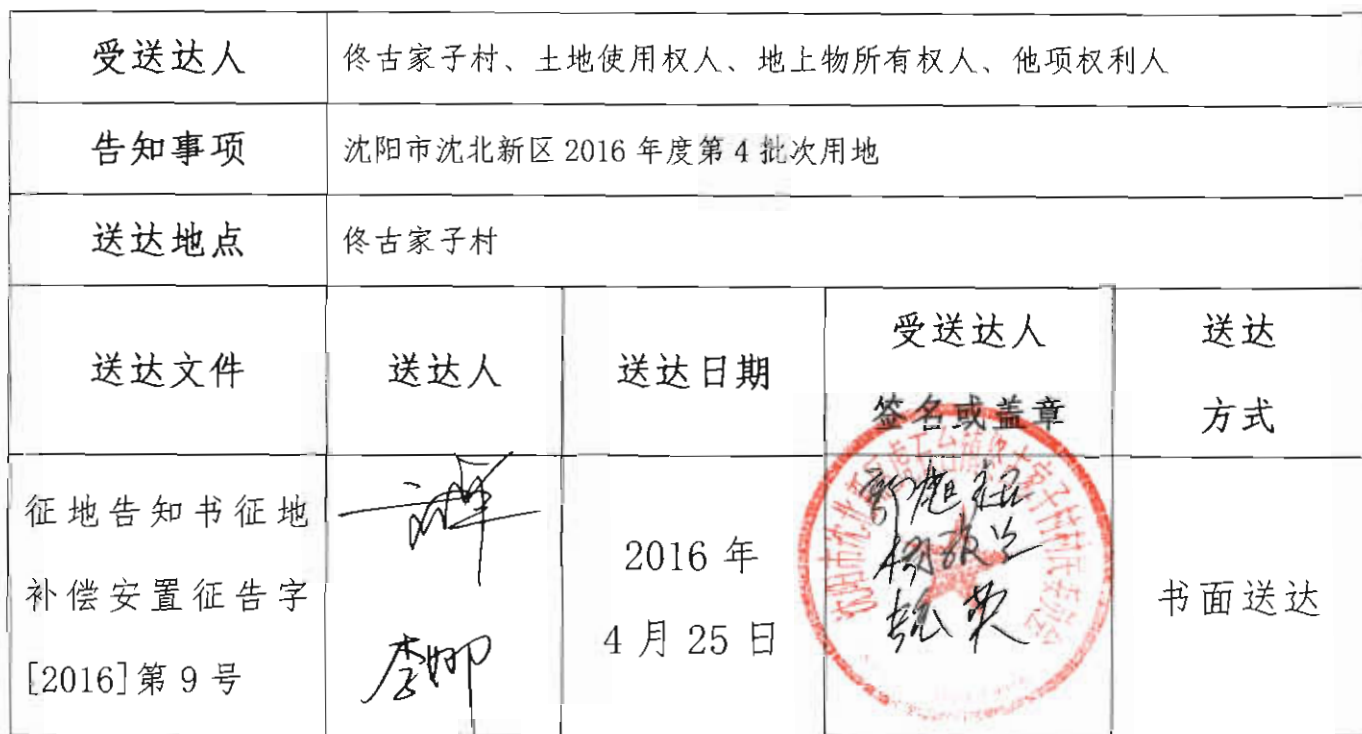 受送达人 佟古家子村、土地使用权人、地上物所有权人、他项权利人
告知事项 沈阳市沈北新区 2016 年度第 4 批次用地
送达地点 佟古家子村
送达文件 送达人 送达日期 受送达人 签名或盖章 送达 方式
征地告知书征地
补偿安置征告字
[2016]第 9 号
李娜
2016 年
4 月 25 日
书面送达